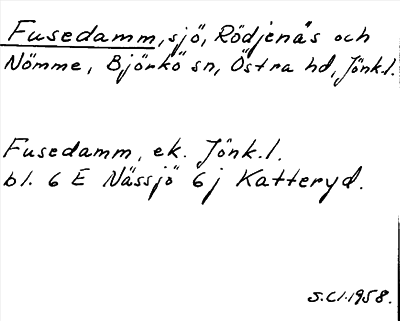 Fusedamm, sjö, Rödjenäs och
Nömme, Björkö sn, Östra hd, Jönk.l.
Fusedamm, ek. Jönk.l.
bl. 6 E Nässjö 6j Katteryd.
S.Cl.1958.